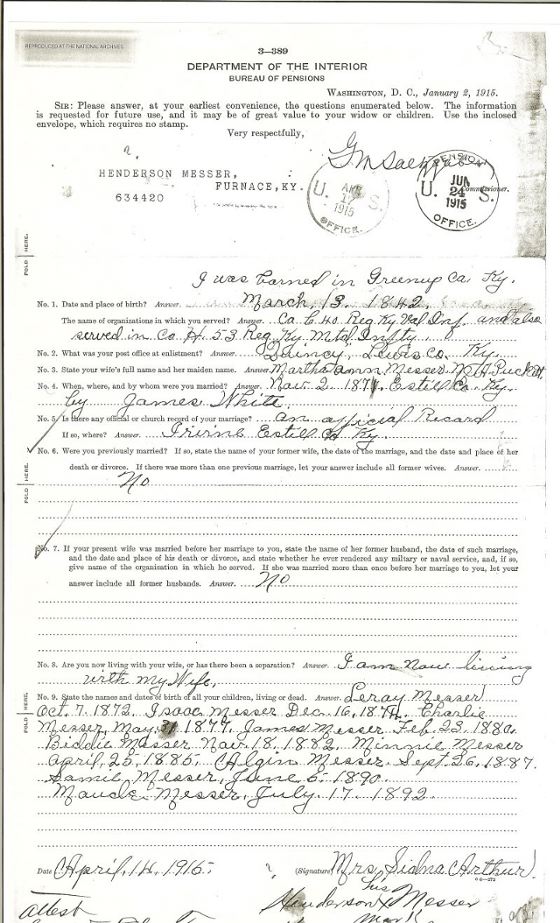 REPRODUCED AT THE NATIONAL ARCHIVES
3—389
DEPARTMENT OF THE INTERIOR
BUREAU OF PENSIONS
WASHINGTON, D. C., January 2, 1915.
SIR: Please answer, at your earliest convenience, the questions enumerated below. The information
is requested for future use, and it may be of great value to your widow or children. Use the inclosed
envelope, which requires no stamp.
Very respectfully,
HENDERSON MESSER,
FURNACE, KY.
634420
U. S.
APR 17 1915
OFFICE.
PENSION
U. S.
JUN 24 1915
OFFICE.
Commissioner.
FOLD HERE.
I was borned in Greenup Co. Ky.
No. 1. Date and place of birth? Answer. March, 13, 1842
The name of organizations in which you served? Answer. Co. E 40 Reg Ky Vol Inf. and also
served in Co H. 53 Reg. Ky Mtd Infty.
No. 2. What was your post office at enlistment? Answer. Quincy, Lewis Co. Ky.
No. 3. State your wife's full name and her maiden name. Answer. Martha Ann Messer M. A. Puckett
No. 4. When, where, and by whom were you married? Answer. Nov. 2 1871, Estill Co. Ky.
by James White
No. 5. Is there any official or church record of your marriage? Answer. an official Record
If so, where? Answer. Irvine Estill Co Ky.
No. 6. Were you previously married? If so, state the name of your former wife, the date of the marriage, and the date and place of her
death or divorce. If there was more than one previous marriage, let your answer include all former wives. Answer.
No
FOLD HERE.
No. 7. If your present wife was married before her marriage to you, state the name of her former husband, the date of such marriage,
and the date and place of his death or divorce, and state whether he ever rendered any military or naval service, and, if so,
give name of the organization in which he served. If she was married more than once before her marriage to you, let your
answer include all former husbands. Answer. No
No. 8. Are you now living with your wife, or has there been a separation? Answer. I am Now living
with my Wife.
No. 9. State the names and dates of birth of all your children, living or dead. Answer. Leroy Messer
Oct. 7. 1872. Isaac Messer Dec. 16, 1874. Charlie
Messer, May 31 1877. James Messer. Feb. 23. 1880.
Biddie Messer Nov. 18, 1882. Minnie Messer
April, 25, 1885. Algin Messer. Sept. 26. 1887.
Messer, June 6. 1890.
Maude Messer, July 17. 1892.
FOLD HERE.
Date April, 14, 1915. (Signature) Mrs. Sidna Arthur
Henderson X Messer
His
Mark
attest